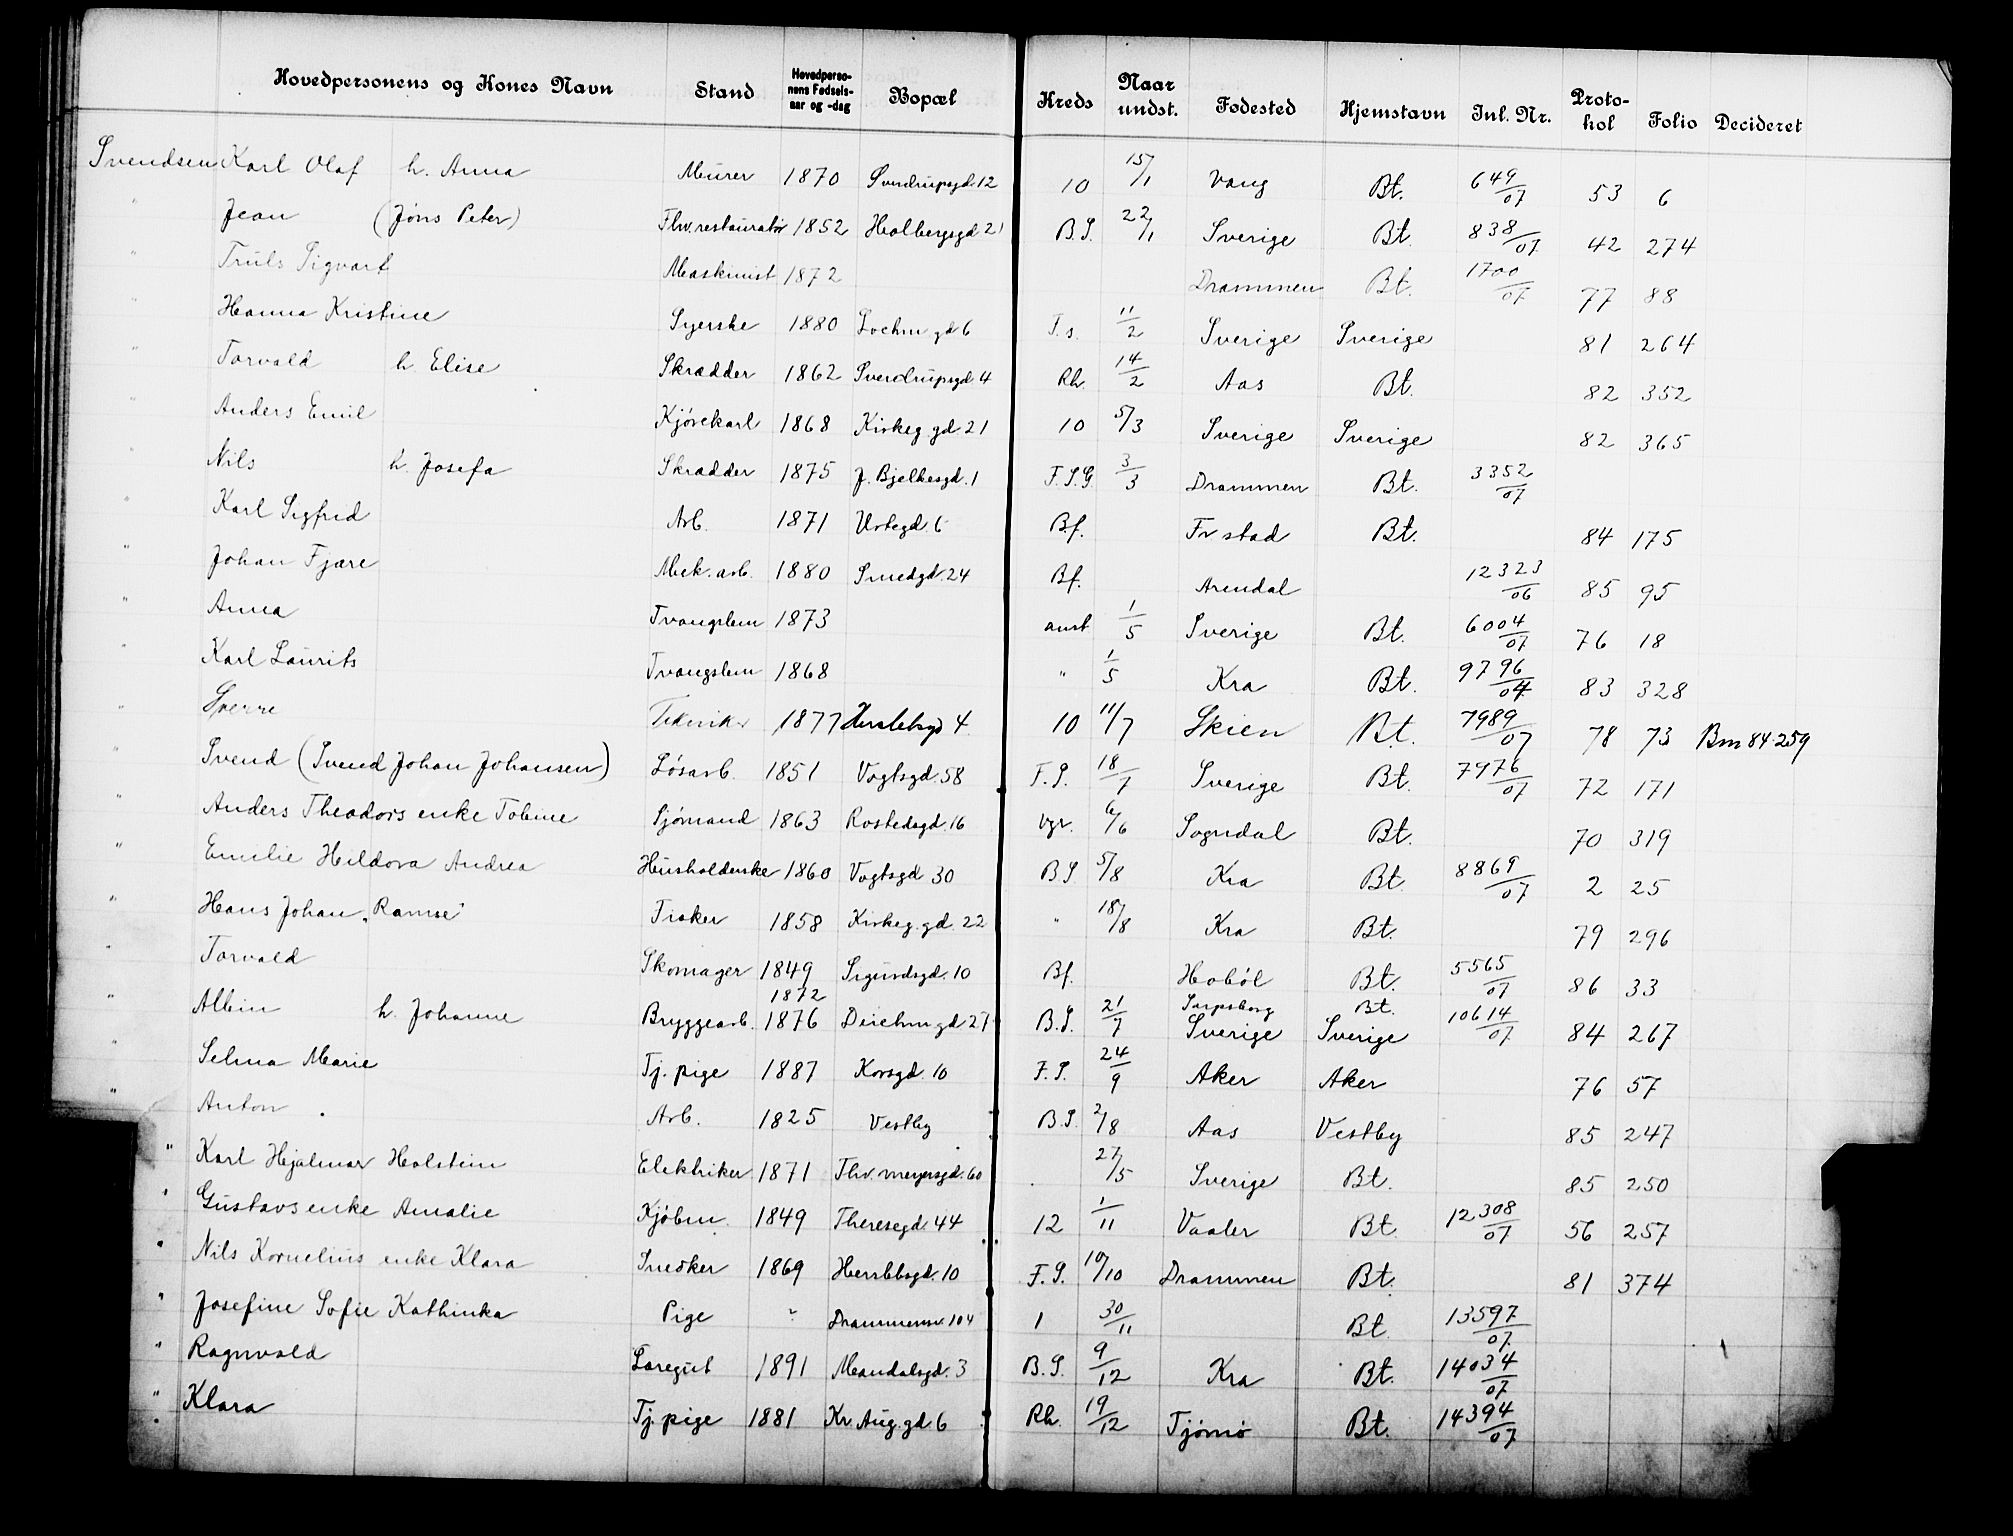 Hovedpersonens og Kones Navn Stand Hovedperso-nens Fødsels-aar og -dag Bopæl Kreds Naar undst. Fødested Hjemstavn Inl. Nr. Proto-kol Folio Decideret
Svendsen Karl Olaf h. Anna Murer 1870 Sverdrupsgd. 12 10 15/1 Vang Bt. 649/07 53 6
" Jean (Jöns Peter) Fhv. restauratör 1852 Holbergsgd 21 B.S. 22/1 Sverige Bt. 838/07 42 274
" Truls Sigvart Maskinist 1872 Drammen Bt. 1700/07 77 88
" Hanna Kristine Syerske 1880 Lochm gd 6 F.s. 11/2 Sverige Sverige 81 264
" Torvald h Elise Skrædder 1862 Sverdrupsgd. 4 Rh. 14/2 Aas Bt. 82 352
" Anders Emil Kjörekarl 1868 Kirkeg. gd. 21 10 5/3 Sverige Sverige 82 365
" Nils h. Josefa Skrædder 1875 J. Bjelkesgd. 1 F.S.G. 3/3 Drammen Bt. 3352/07
" Karl Sigfred Arb. 1871 Urtegd. 6 Bf. Fr stad Bt. 84 175
" Johan Fjære Mek. arb. 1880 Smedgd. 24 Bf. Arendal 12323/06 85 95
" Anna Tvangslem 1873 anst 1/5 Sverige Bt. 6004/07 76 18
" Karl Laurits Tvangslem 1868 " 1/5 Kra Bt. 9796/04 83 328
" Sverre Tekniker 1877 Herslebsgd 4 10 11/7 Skien Bt. 7989/07 78 73 Bm 84-259
" Svend (Svend Johan Johansen) Lösarb. 1851 Vogtsgd. 58 F.S. 18/7 Sverige Bt. 7976/07 72 171
" Anders Theodors enke Tobine Sjömand 1863 Rostedsgd. 16 Vgr. 6/6 Sogndal Bt. 70 319
" Emilie Hildora Andrea Husholderske 1860 Vogtsgd 30 B.S 5/8 Kra Bt. 8869/07 2 25
" Hans Johan "Ramse" Fisker 1858 Kirkeg. gd. 22 " 18/8 Kra Bt. 79 296
" Torvald Skomager 1849 Sigurdsgd. 10 Bf. Haböl Bt. 5565/07 86 33
" Albin h. Johanne Bryggearb. 1872 1876 Deichm gd 27 B.S. 21/7 Sarpsborg Sverige Bt. Sverige 10614/07 84 267
" Selma Marie Tj. pige 1887 Korsgd. 10 F.S. 24/9 Aker Aker 76 57
" Anton Arb. 1825 Vestby B.S. 2/8 Aas Vestby 85 247
" Karl Hjalmar Holstein Elektriker 1871 Thv. meyersgd. 60 27/5 Sverige Bt. 85 250
" Gustavs enke Amalie Kjöbm. 1849 Theresegd. 44 12 1/11 Vaaler Bt. 12308/07 56 257
" Nils Kornelius enke Klara Snedker 1869 Herslebsgd. 10 F.S. 10/10 Drammen Bt. 81 374
" Josefine Sofie Kathinka Pige " Drammensv. 104 1 30/11 Bt. 13597/07
" Ragnvald Laregut 1891 Mandalsgd. 3 B.S. 9/12 Kra Bt. 14034/07
" Klara Tj. pige 1881 Kr. Aug. gd. 6 Rh. 19/12 Tjömö Bt. 14394/07